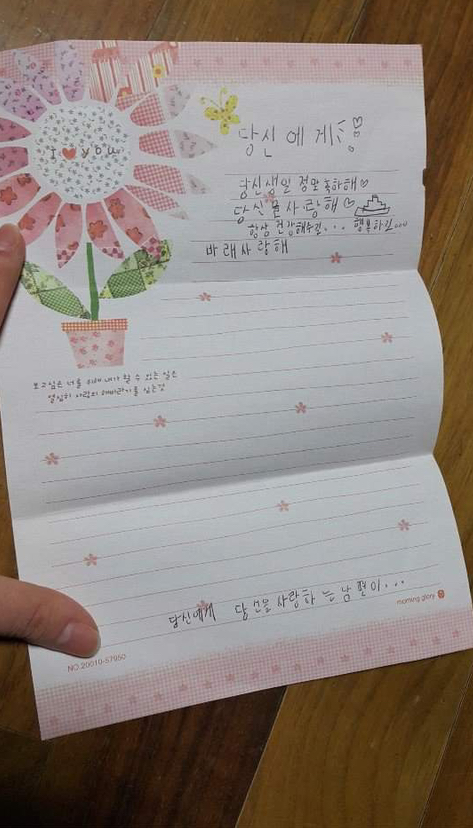 I ♥ you
당신에게
당신생일 정말 축하해♡
당신을사랑해♡
항상 건강해주길... 행복하길...
바래사랑해
보고싶은 너를 위해 내가 할 수 있는 일은
열심히 사랑의 해바라기를 심는것
당신에게 당신을 사랑하는 남편이...
morning glory
NO.20010-57950